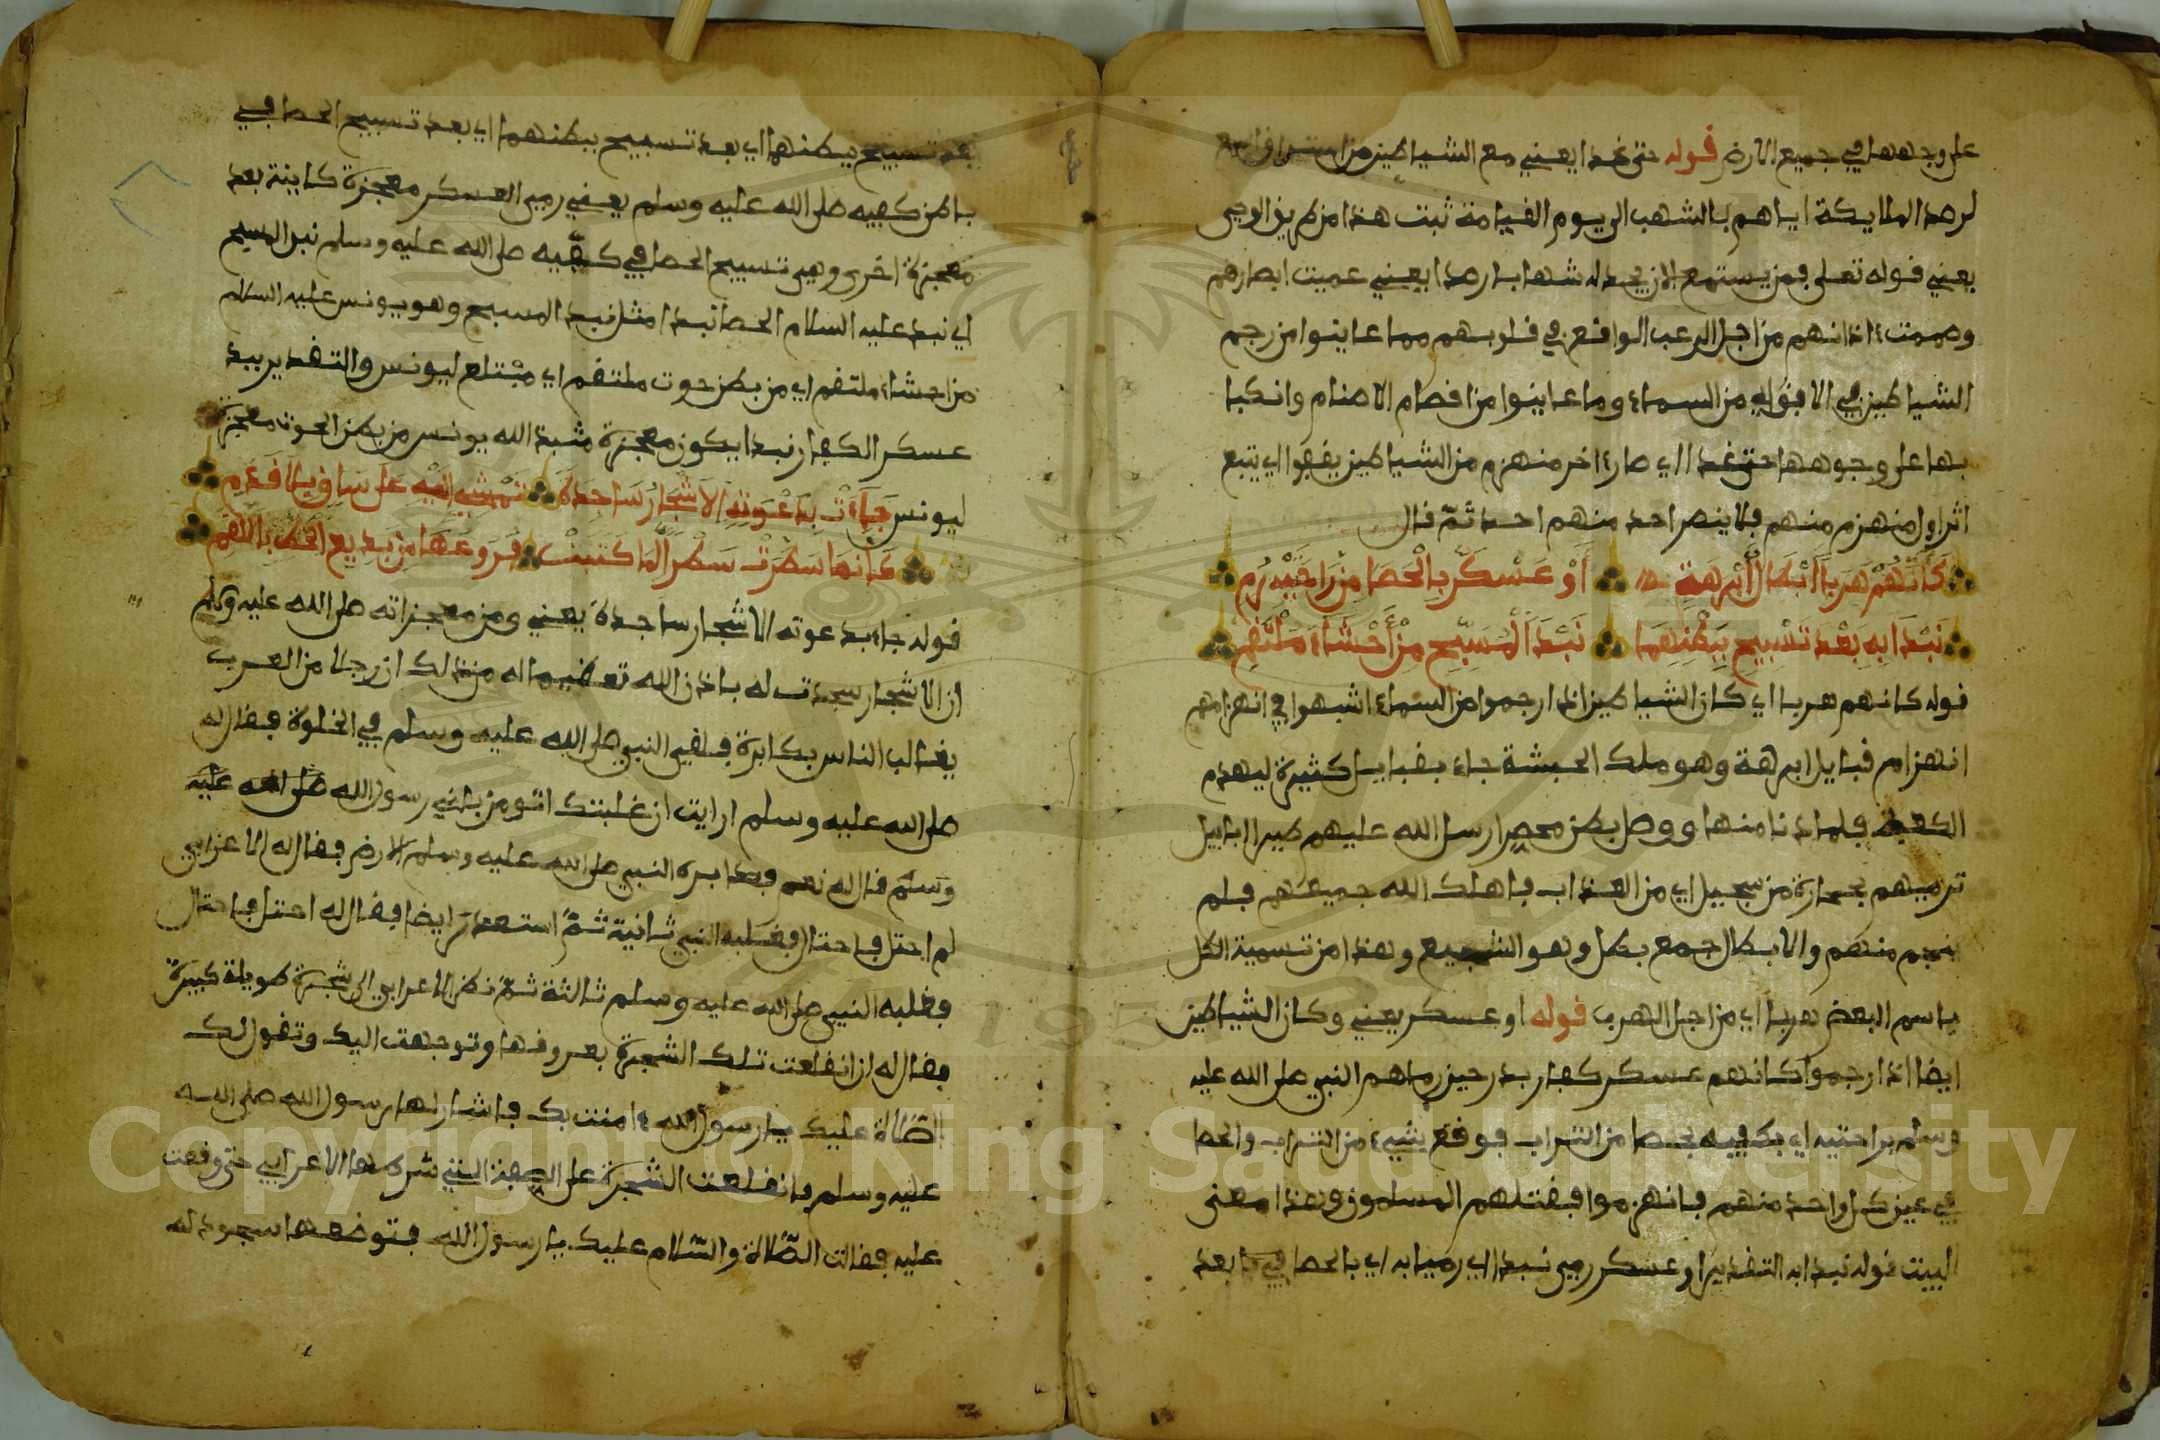 على وجهها في جميع الارض قوله حتى غدا يعني مع الشياطين من استراق السمع
لرصد الملايكة اياهم بالشهب الى يوم القيامة ثبت هذا من طريق الوحي
يعني قوله تعلى فمن يستمع الان يجد له شهابا رصدا يعني عميت ابصارهم
وصممت ءاذانهم من اجل الرعب الواقع في قلوبهم مما عاينوا من رجم
الشياطين في الافق اي من السماء وما عاينوا من افصام الاصنام وانكبا
بها على وجوهها حتى غدا اي صار ءاخر منهزم من الشياطين يقفوا اي يتبع
اثر اول منهزم منهم فلا ينصر احد منهم احد ثم قال
كَأَنَّهُمْ هَرَبًا أَبْطَالُ أَبْرَهَةٍ أَوْ عَسْكَرٌ بِالْحَصَا مِنْ رَاحَتَيْهِ رُمِ
نَبْذًا بِهِ بَعْدَ تَسْبِيحٍ بِبَطْنِهِمَا نَبْذَ الْمُسَبِّحِ مِنْ أَحْشَاءِ مُلْتَقِمِ
قوله كانهم هربا اي كان الشياطين اذا رجموا من السماء اشبهوا في انهزامهم
انهزام قبايل ابرهة وهو ملك الحبشة جاء بقبايل كثيرة ليهدم
الكعبة فلما دنا منها ووصل بطن محصر ارسل الله عليهم طيرا ابابيل
ترميهم بحجارة من سجيل اي من العذاب فاهلك الله جميعهم فلم
ينجم منهم والابطال جمع بطل وهو الشجيع وهذا من تسمية الكل
باسم البعض هربا اي من اجل الهرب قوله او عسكر يعني وكان الشياطين
ايضا اذا رجموا كانهم عسكر كفار بدر حين رماهم النبي صلى الله عليه
وسلم براحتيه اي بكفيه بحصا من التراب فوقع شيء من التراب والحصا
في عين كل واحد منهم فانهزموا فقتلهم المسلمون وهذا معنى
البيت قوله نبذا به التقدير او عسكر رمي نبذا اي رميا به اي بالحصا في بعد
بعد تسبيح ببطنهما اي بعد تسبيح ببطنهما اي بعد تسبيح الحصا في
باطن كفيه صلى الله عليه وسلم يعني رمي العسكر معجزة كاينة بعد
معجزة اخرى وهي تسبيح الحصا في كفيه صلى الله عليه وسلم نبذ المسبح
اي نبذ عليه السلام الحصا نبذا مثل نبذ المسبح وهو يونس عليه السلام
من احشاء ملتقم اي من بطن حوت ملتقم اي مبتلع ليونس والتقدير بيد
عسكر الكفار نبذا يكون معجزة مثبذ الله يونس من بطن الحوت معجزة
ليونس جَاءَتْ بِدَعْوَتِهِ الأَشْجَارُ سَاجِدَةً تَمْشِي إِلَيْهِ عَلَى سَاقٍ بِلَا قَدَمِ
كَأَنَّمَا سَطَرَتْ سَطْرًا لِمَا كَتَبَتْ فُرُوعُهَا مِنْ بَدِيعِ الْخَطِّ بِاللَّقَمِ
قوله جاءت بدعوته الاشجار ساجدة يعني ومن معجزاته صلى الله عليه وسلم
ان الاشجار سجدت له باذن الله تعظيما له من ذلك ان رجلا من العرب
يغالب الناس بكابرة فلقي النبي صلى الله عليه وسلم في الخلوة فقال له
صلى الله عليه وسلم ارايت ان غلبتك اتومن باني رسول الله صلى الله عليه
وسلم قال له نعم فصابره النبي صلى الله عليه وسلم الارض فقال له الاعرابي
لم احتل فاحتال فغلبه النبي ثانية ثم استعد ايضا فقال له احتل فاحتال
فغلبه النبي صلى الله عليه وسلم ثالثة ثم نظر الاعرابي الى شجرة طويلة كبيرة
فقال له ان انقلعت تلك الشجرة بعروقها وتوجهت اليك وتقول لك
الصلاة عليك يا رسول الله ءامنت بك فاشار لها رسول الله صلى الله
عليه وسلم فانقلعت الشجرة على الصفة التي شرطها الاعرابي حتى وقفت
عليه فقالت الصلاة والسلام عليك يا رسول الله فتوضعها سجود له
Copyright © King Saud University
1957